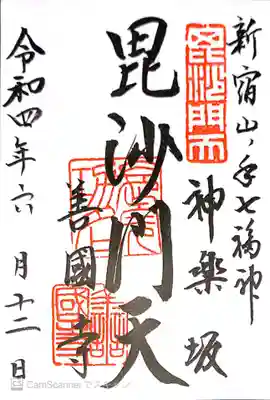 新宿山ノ手七福神
神楽坂
毘沙門天
毘沙門天
善國寺
令和四年六月十二日
CamScanner でスキャン